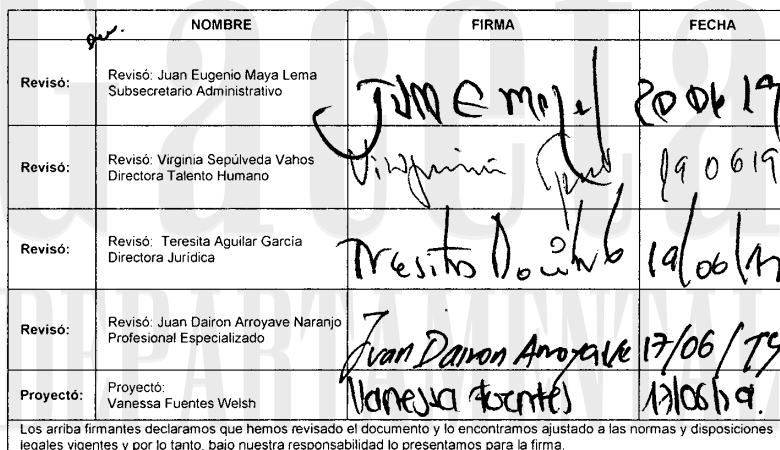 Gaceta
DEPARTAMENTAL
NOMBRE FIRMA FECHA
Revisó: Revisó: Juan Eugenio Maya Lema
Subsecretario Administrativo
Juan E Maya L 20 06 19
Revisó: Revisó: Virginia Sepúlveda Vahos
Directora Talento Humano
Virginia 19 06 19
Revisó: Revisó: Teresita Aguilar García
Directora Jurídica
Teresita 19/06/19
Revisó: Revisó: Juan Dairon Arroyave Naranjo
Profesional Especializado
Juan Dairon Arroyave 17/06/19
Proyectó: Proyectó:
Vanessa Fuentes Welsh
Vanessa Fuentes 17/06/19.
Los arriba firmantes declaramos que hemos revisado el documento y lo encontramos ajustado a las normas y disposiciones
legales vigentes y por lo tanto, bajo nuestra responsabilidad lo presentamos para la firma.